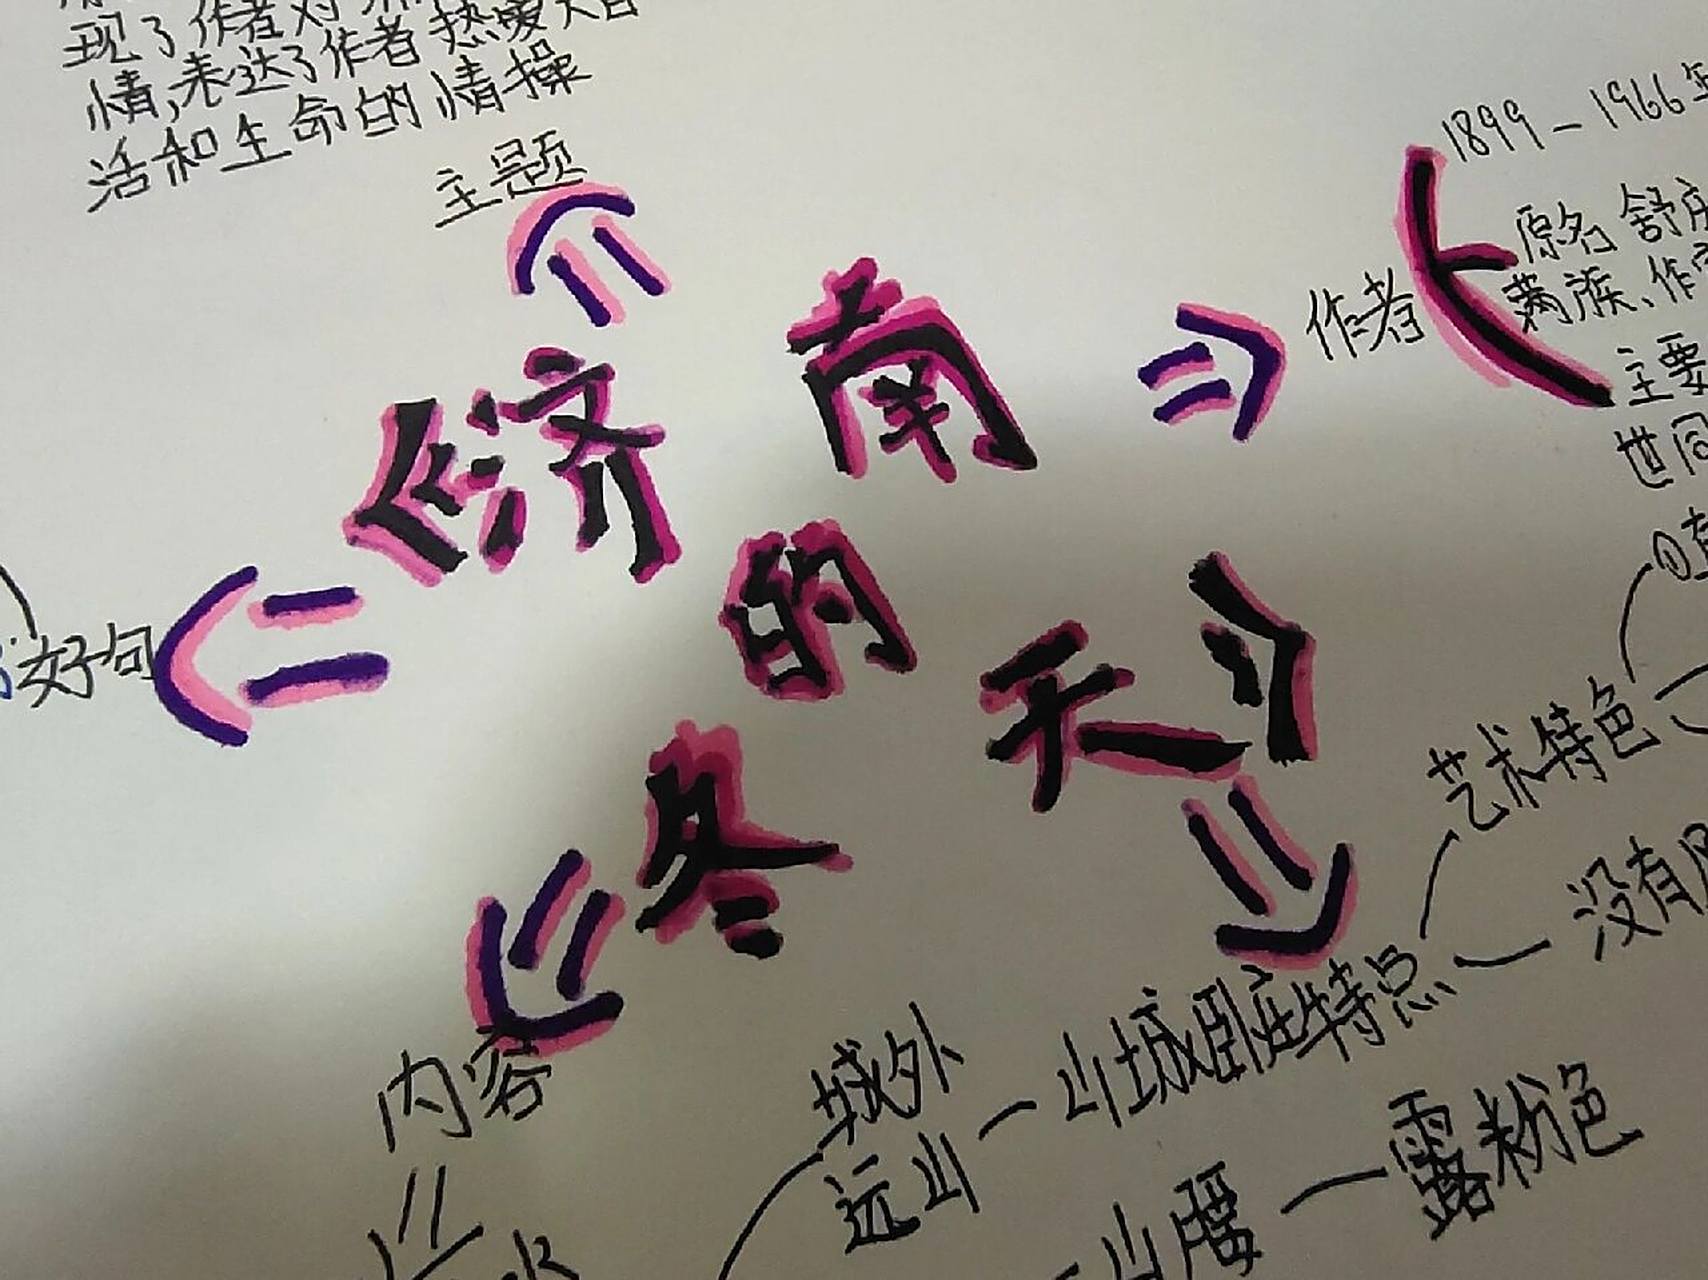 现了作者对
情,表达了作者热爱大自
活和生命的情操
主题
《济南
的
冬
天》
作者
1899-1966年
原名 舒
满族、作
主要
世同
好句
①
艺术特色
特点
没有
内容
水
城外
远山
山城卧在
山腰
露粉色